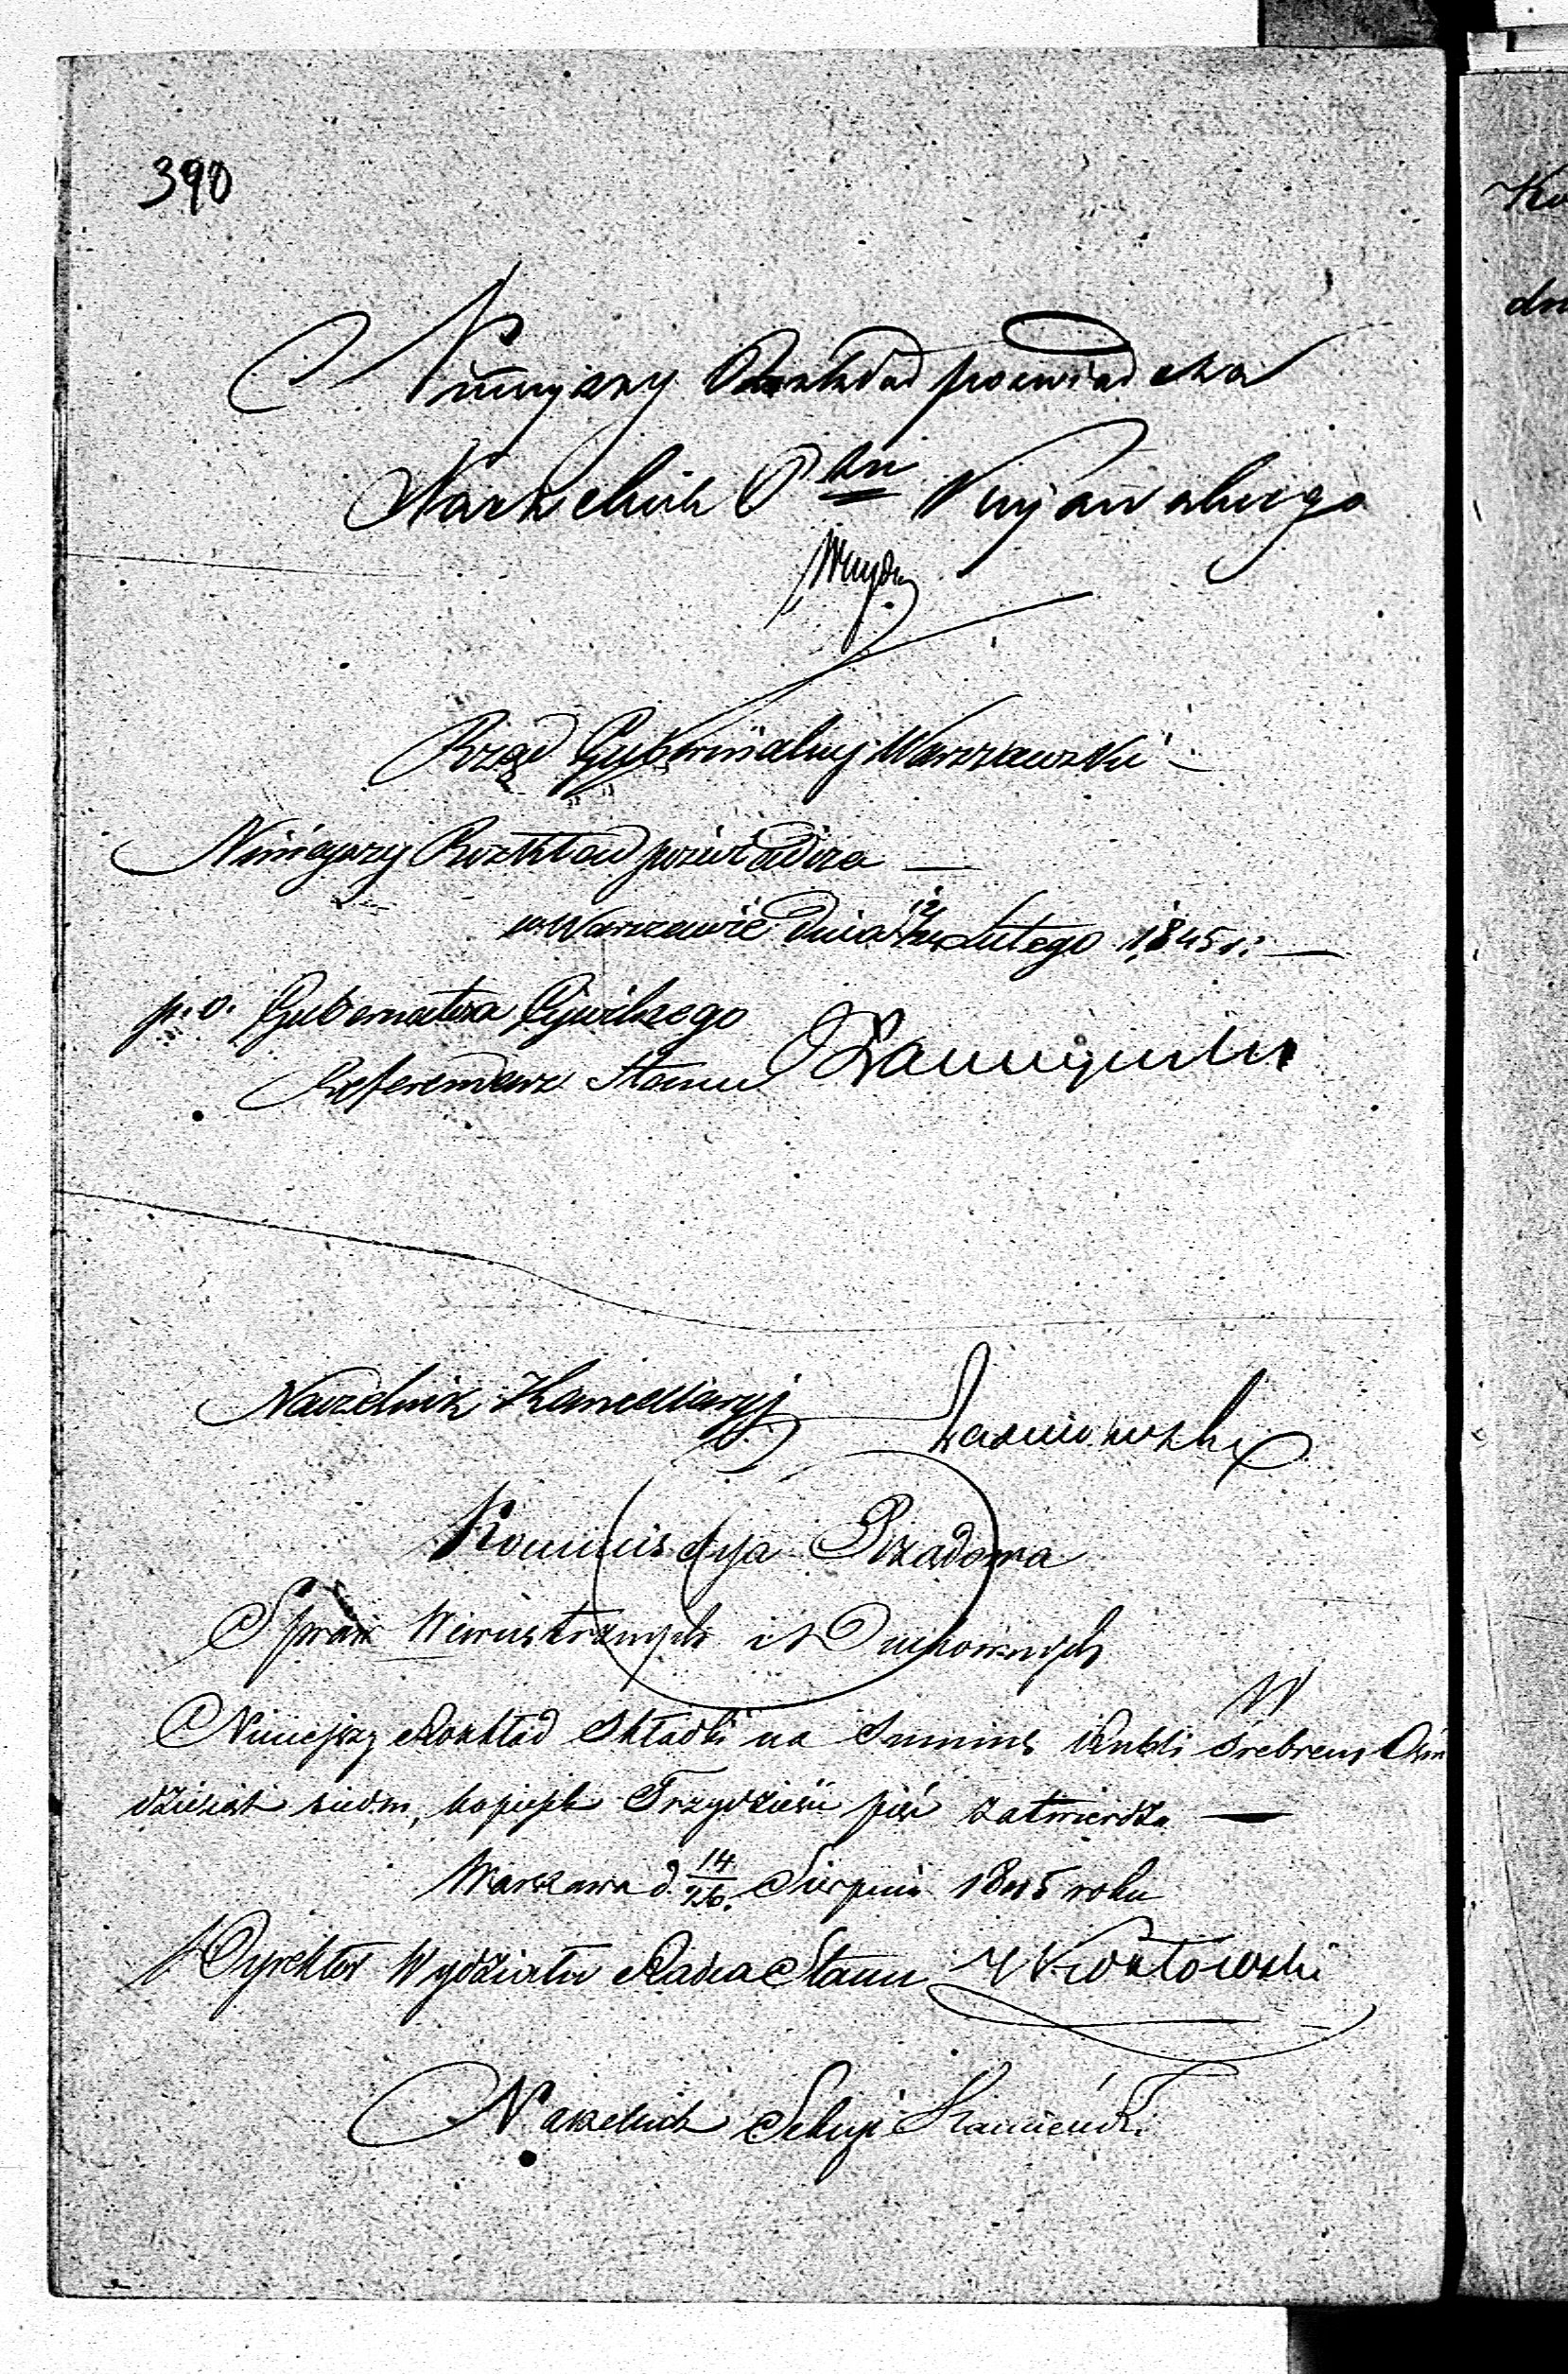 390
Niniejszy Rozkład poświadcza
Naczelnik Ptu Kujawskiego
Rząd Gubernialny Warszawski
Ninieyszy Rozkład poświadcza
w Warszawie dnia Lutego 1845 r.
p. o. Gubernatora Cywilnego
Referendarz Stanu
Naczelnik Kancellaryj
Kommissya Rządowa
Spraw Wewnętrznych i Duchownych
Niniejszy Rozkład składki na Summę Rubli Srebrem Ośm
dziesiąt siedm, kopiejek Trzydzieści pięć zatwierdza
Warszawa d. 14/26. Sierpnia 1845 roku
Dyrektor Wydziału Radca Stanu
Naczelnik Sekcji
Ko
dn